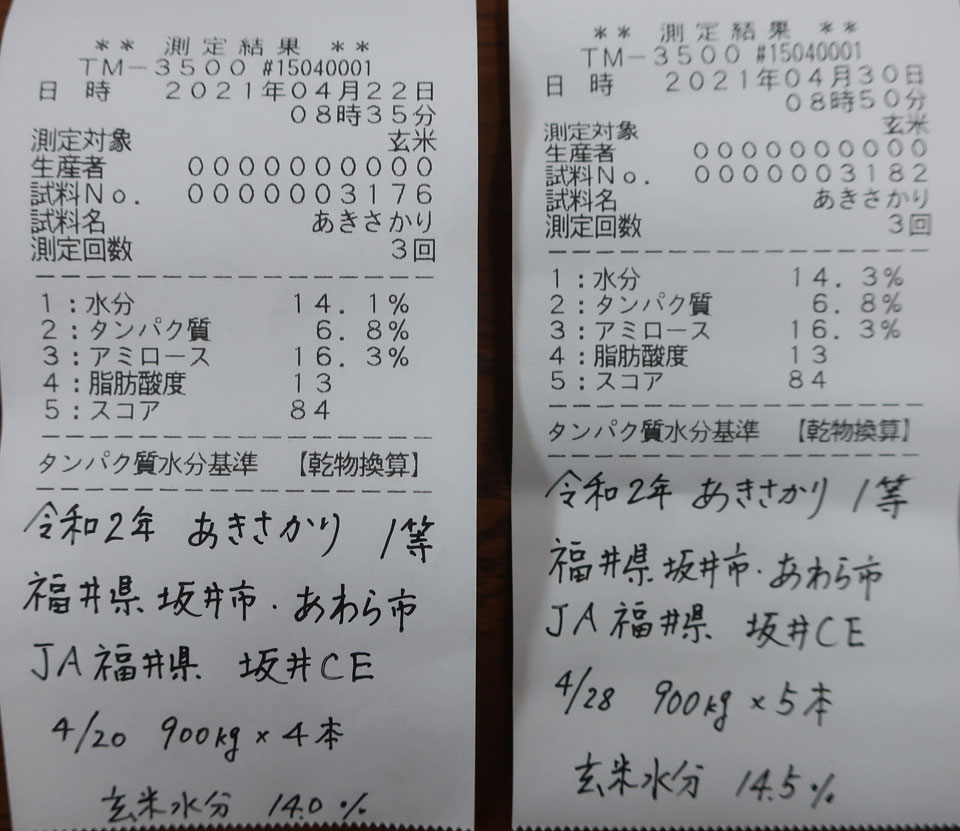 ** 測定結果 **
TM-3500 #15040001
日 時 2021年04月22日
08時35分
測定対象 玄米
生産者 0000000000
試料No. 0000003176
試料名 あきさかり
測定回数 3回
1:水分 14.1%
2:タンパク質 6.8%
3:アミロース 16.3%
4:脂肪酸度 13
5:スコア 84
タンパク質水分基準 【乾物換算】
令和2年 あきさかり 1等
福井県坂井市・あわら市
JA福井県 坂井CE
4/20 900kg×4本
玄米水分 14.0%
** 測定結果 **
TM-3500 #15040001
日 時 2021年04月30日
08時50分
測定対象 玄米
生産者 0000000000
試料No. 0000003182
試料名 あきさかり
測定回数 3回
1:水分 14.3%
2:タンパク質 6.8%
3:アミロース 16.3%
4:脂肪酸度 13
5:スコア 84
タンパク質水分基準 【乾物換算】
令和2年 あきさかり 1等
福井県坂井市・あわら市
JA福井県 坂井CE
4/28 900kg×5本
玄米水分 14.5%